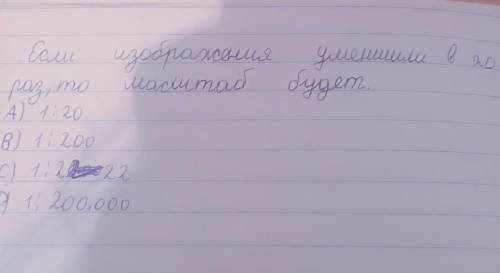 Если изображения уменишили в 20
раз, то масштаб будет.
A) 1:20
B) 1:200
C) 1:22
) 1:200.000